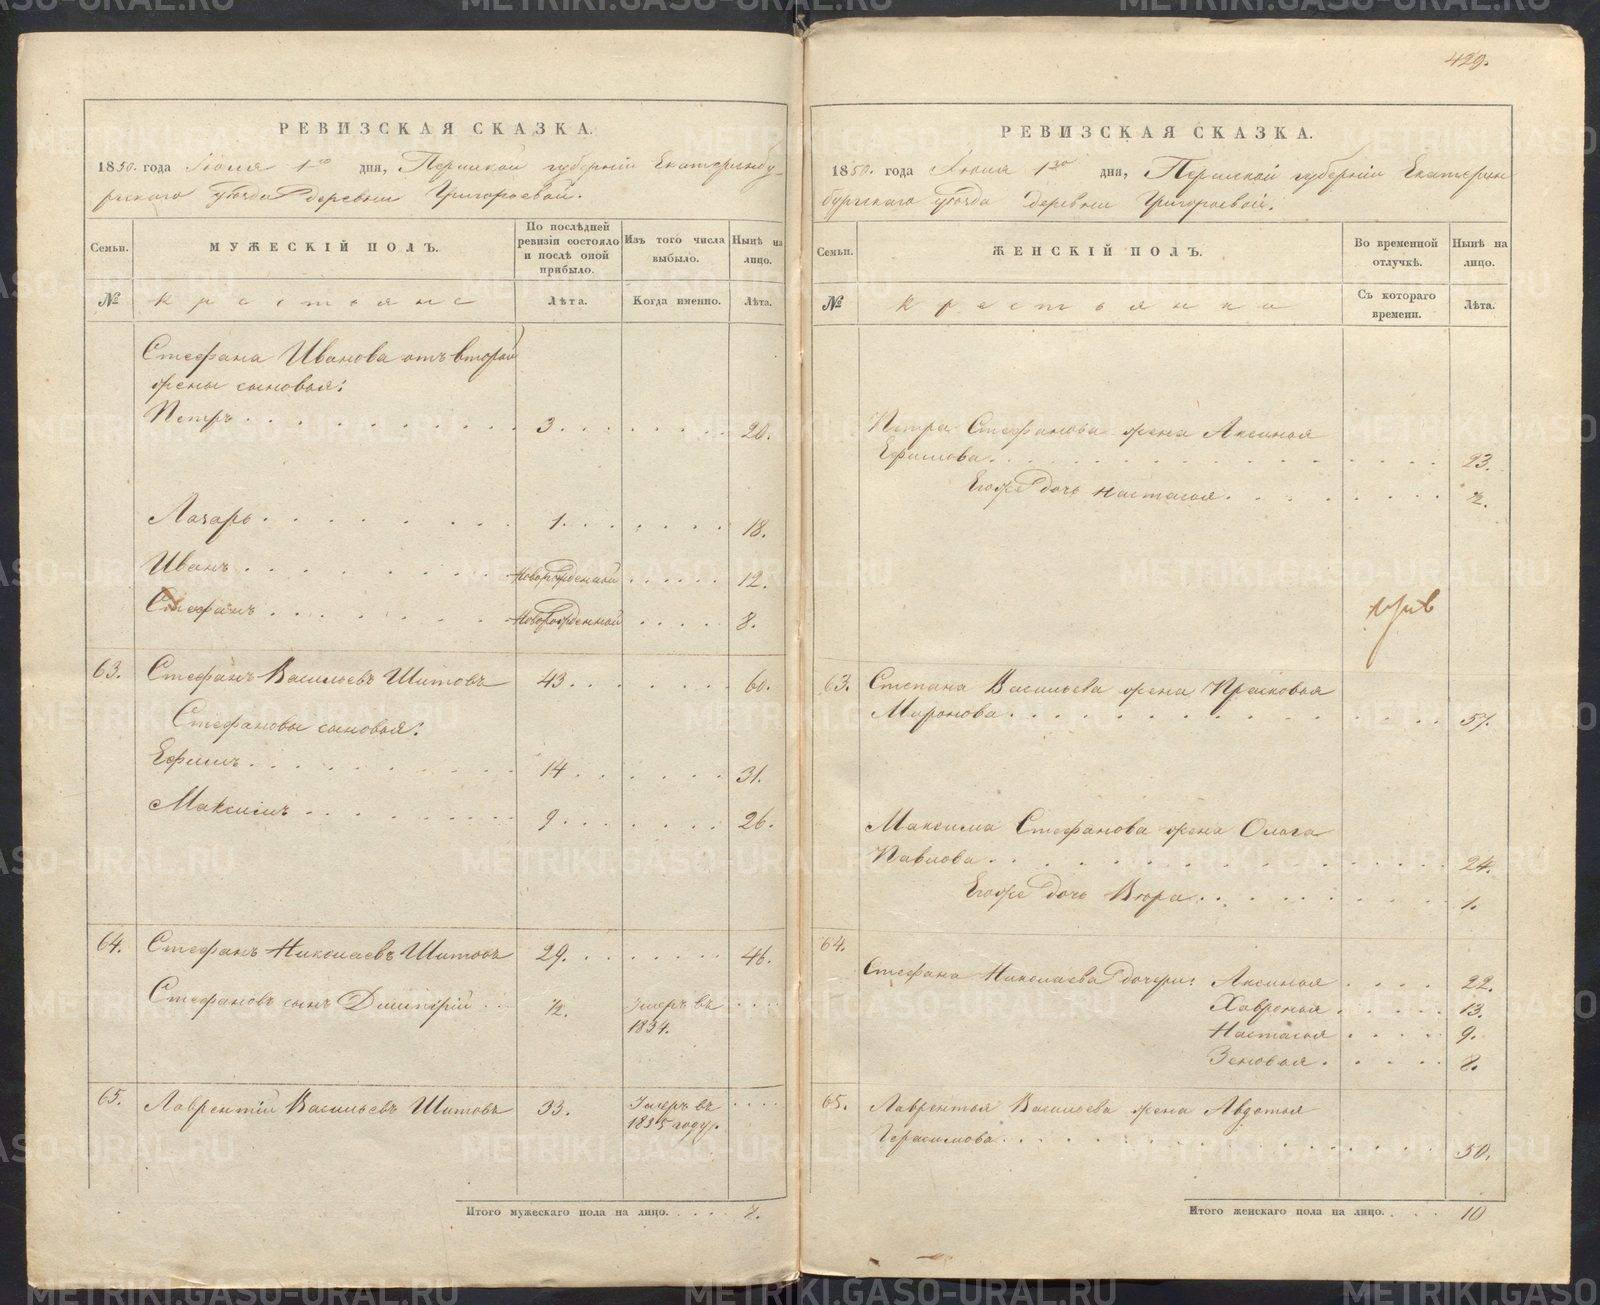 РЕВИЗСКАЯ СКАЗКА.
1850. года Июня 1го дня, Пермской губернiи Екатеринбу-
ргскаго уѣзда деревни Григорьевой.
Семьи.
МУЖЕСКIЙ ПОЛЪ.
По послѣдней ревизiи состояло и послѣ оной прибыло.
Изъ того числа выбыло.
Нынѣ на лицо.
№
крестьяне
Лѣта.
Когда именно.
Лѣта.
Стефана Иванова отъ второй
жены сыновья:
Петръ 3. 20.
Лазарь 1. 18.
Иванъ новорожденный 12.
Стефанъ новорожденный 8.
63. Стефанъ Васильевъ Шитовъ 43. 60.
Стефановы сыновья:
Ефимъ 14 31.
Максимъ 9. 26.
64. Стефанъ Николаевъ Шитовъ 29. 46.
Стефановъ сынъ Димитрiй ½. Умеръ въ
1834.
65. Лаврентiй Васильевъ Шитовъ 33. Умеръ въ
1835 году.
Итого мужескаго пола на лицо. 7.
429.
РЕВИЗСКАЯ СКАЗКА.
1850. года Июня 1го дня, Пермской губернiи Екатерин
бургскаго уѣзда деревни Григорьевой.
Семьи.
ЖЕНСКIЙ ПОЛЪ.
Во временной отлучкѣ.
Нынѣ на лицо.
№
крестьянки
Съ котораго времени.
Лѣта.
Петра Стефанова жена Аксинья
Ефимова 23.
Егоже дочь Настасья 2.
63. Степана Васильева жена Прасковья
Миронова 57.
Максима Стефанова жена Ольга
Павлова 24.
Егоже дочь Вѣра 1.
64.
Стефана Николаева дочери: Аксинья 22.
Хавронья 13.
Настасья 9.
Зеновья 8.
65. Лаврентья Васильева жена Авдотья
Герасимова 50.
Итого женскаго пола на лицо. 10
METRIKI.GASO-URAL.RU